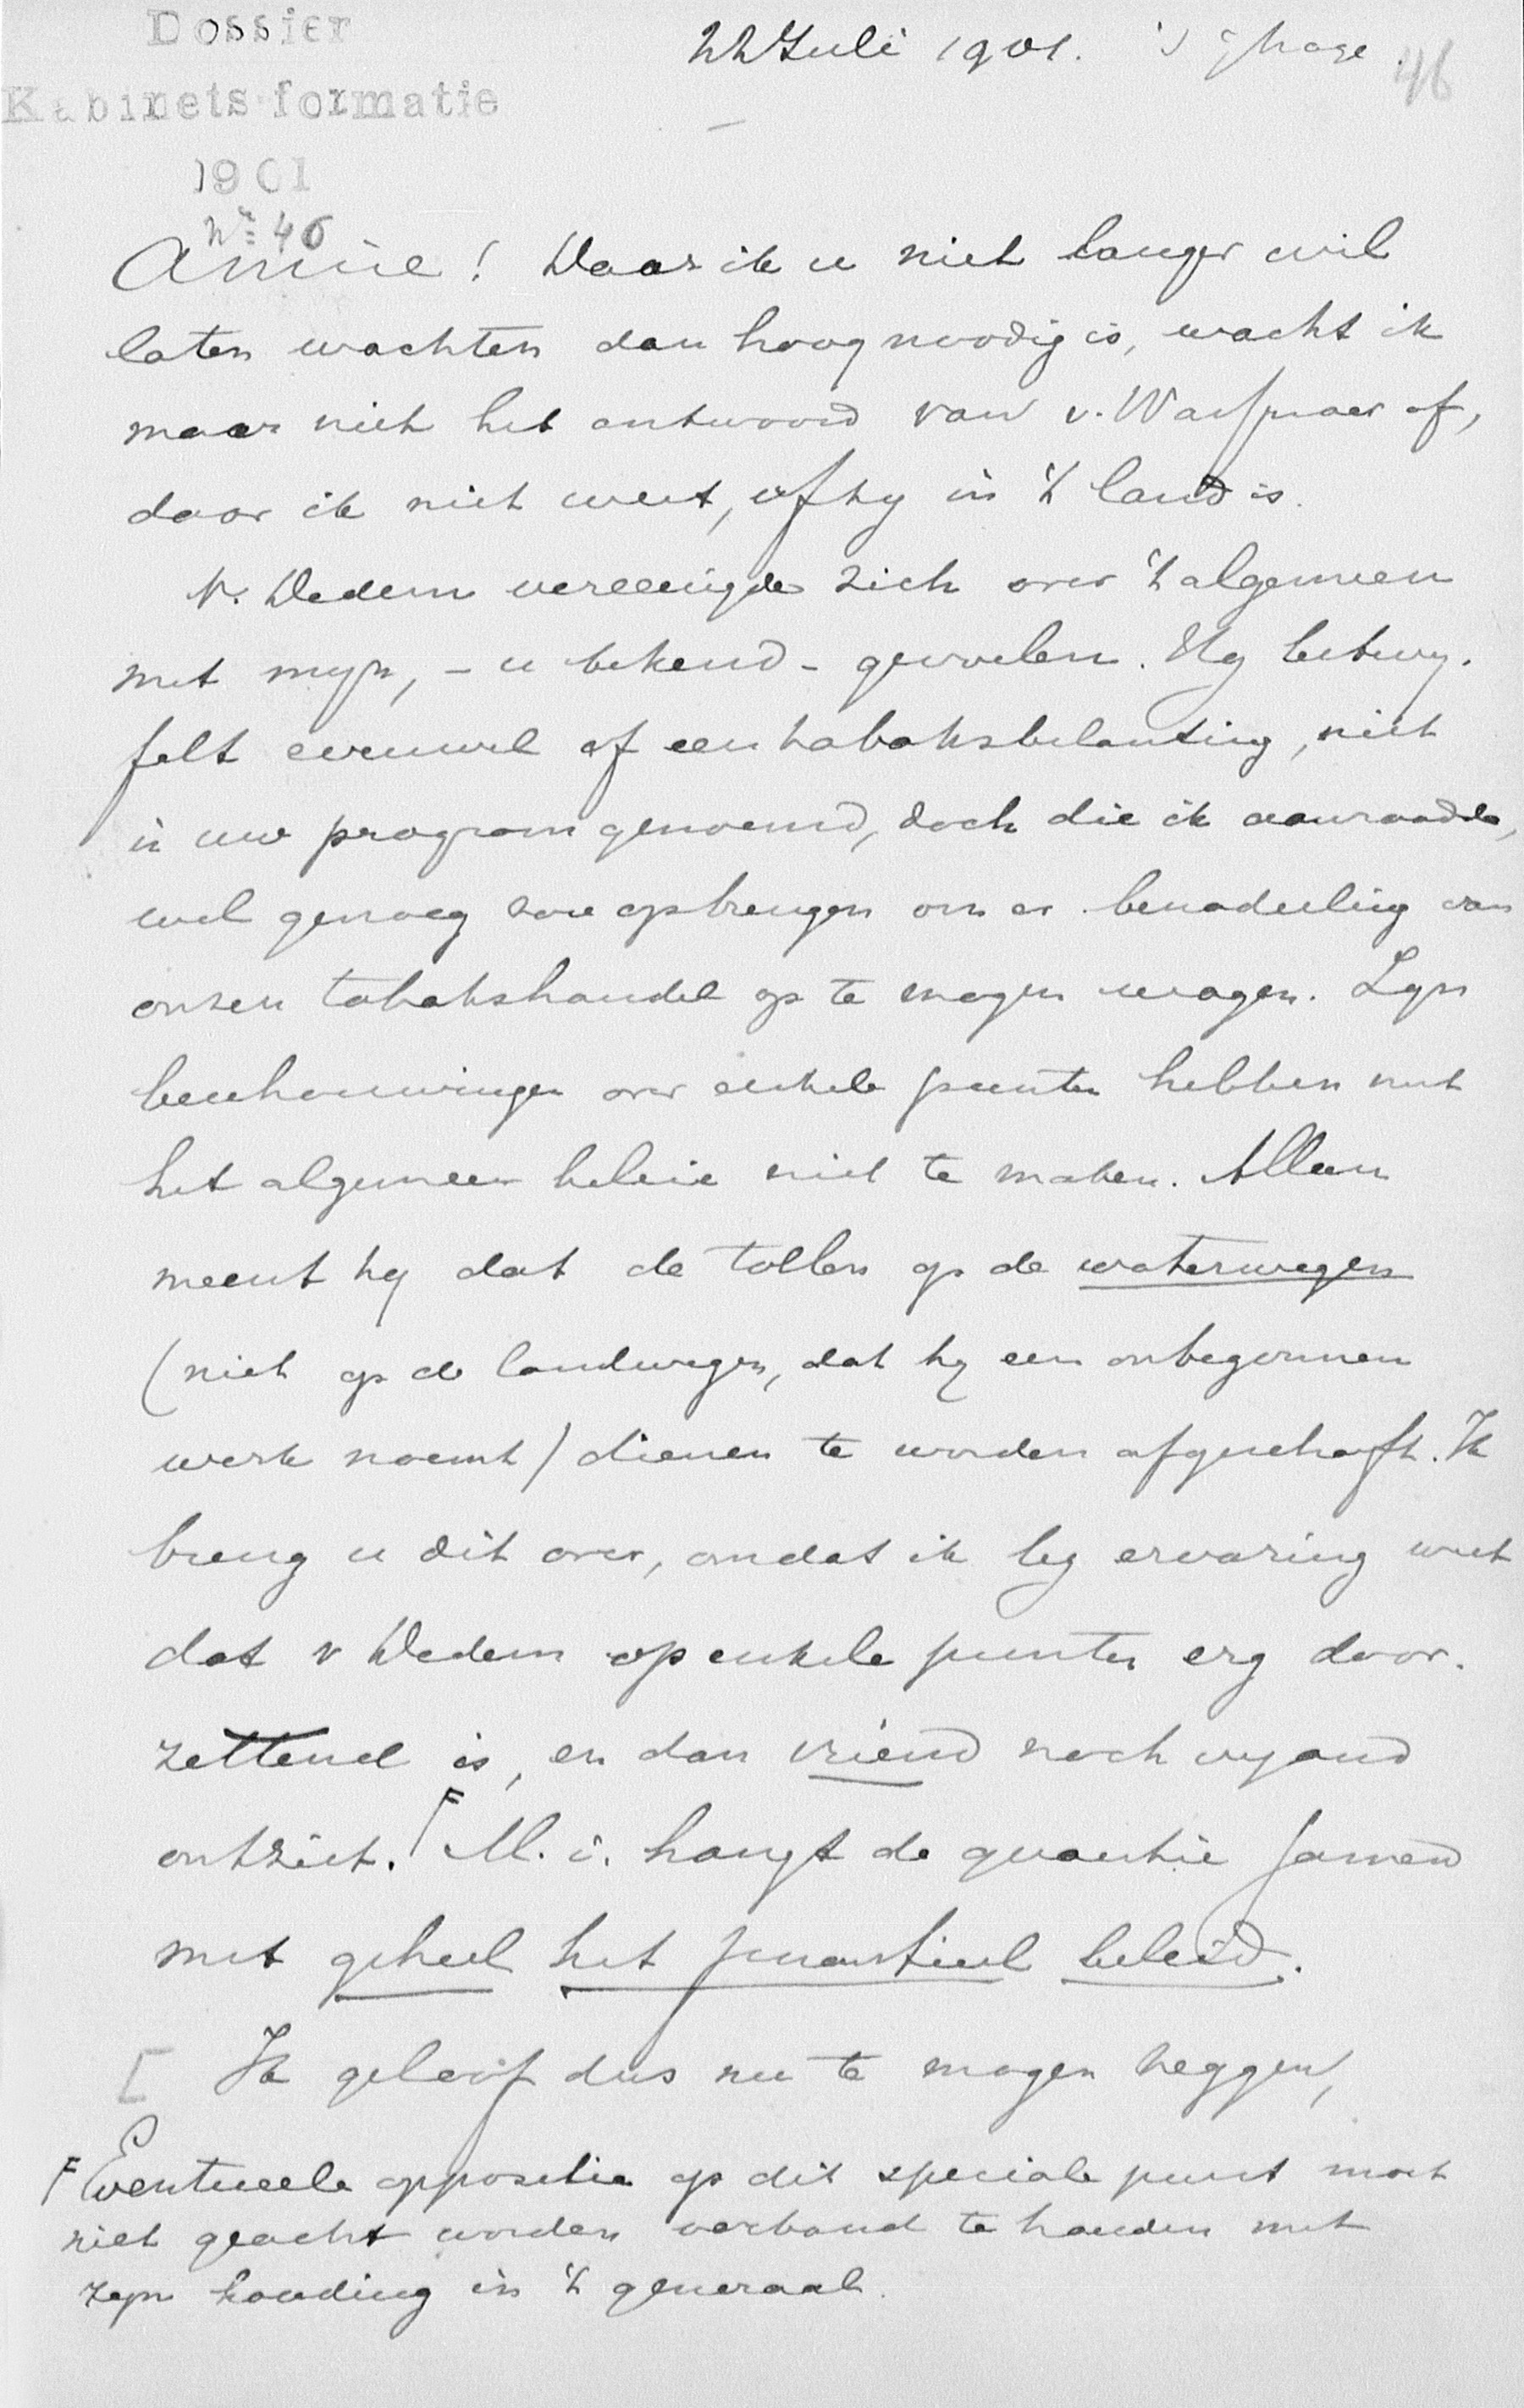 Dossier
Kabinetsformatie
1901
No 46
22 Juli 1901. 's Hage.
46
Amice! Daar ik u niet langer wil
laten wachten dan hoog noodig is, wacht ik
maar niet het antwoord van v. Wassenaer af,
daar ik niet weet, of hy in 't land is.
V. Dedem vereenigde zich over 't algemeen
met myn, - u bekend - gevoelen. Hy betwy-
felt evenwel of een tabaksbelasting, niet
in uw program genoemd, doch die ik aanraadde,
wel genoeg zou opbrengen om er benadeeling van
onzen tabakshandel op te mogen wagen. Zyn
beschouwingen over enkele punten hebben met
het algemeen beleid niet te maken. Alleen
meent hy dat de tollen op de waterwegen
(niet op de landwegen, dat hy een onbegonnen
werk noemt) dienen te worden afgeschaft. Ik
breng u dit over, omdat ik by ervaring weet
dat v Dedem op enkele punten erg door-
zettend is, en dan vriend noch vyand
ontziet. F M. i. hangt de quaestie samen
met geheel het financieel beleid.
[ Ik geloof dus nu te mogen zeggen,
F Eventueele oppositie op dit speciale punt moet
niet geacht worden verband te houden met
zyn houding in 't generaal.